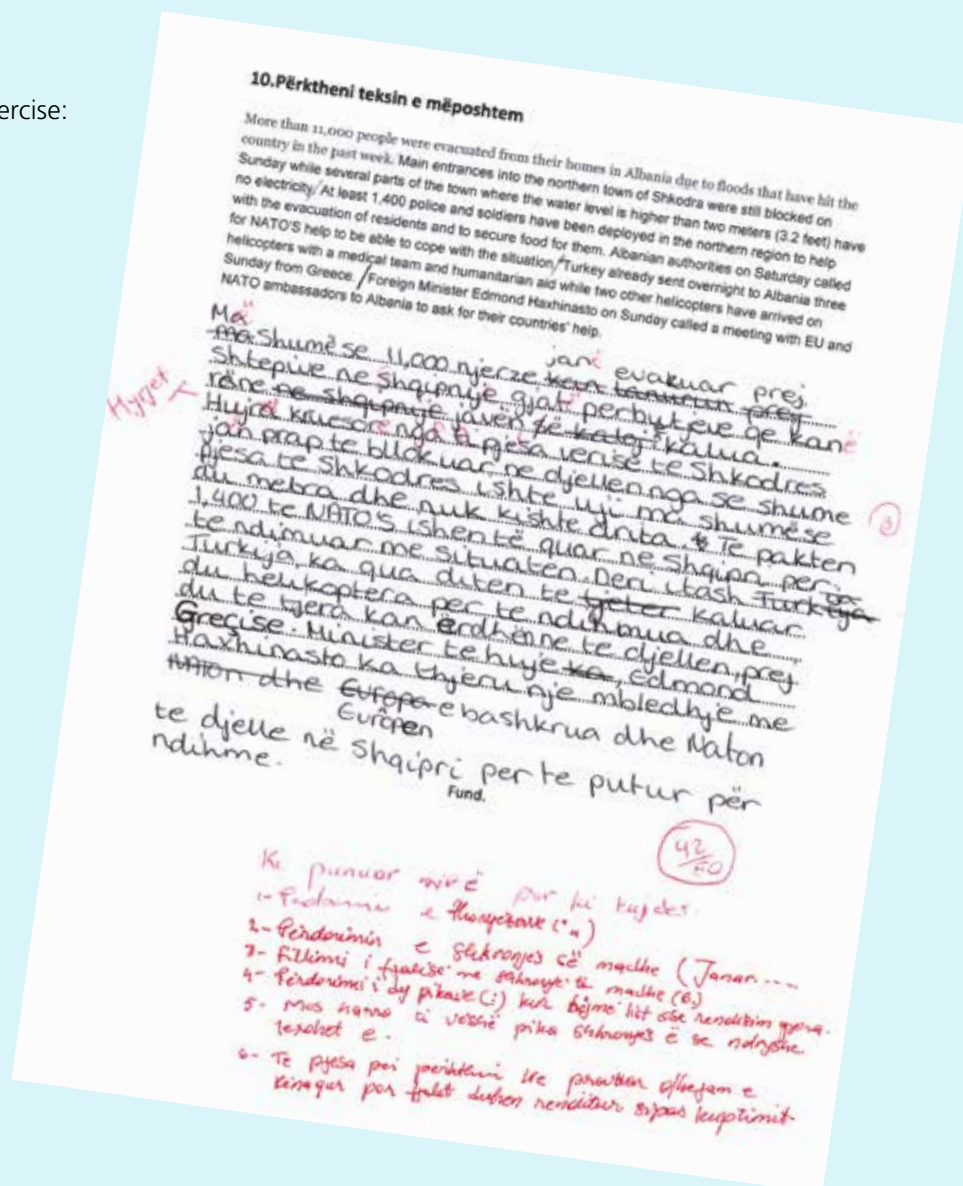 ercise:
10.Përktheni teksin e mëposhtem
More than 11,000 people were evacuated from their homes in Albania due to floods that have hit the
country in the past week. Main entrances into the northern town of Shkodra were still blocked on
Sunday while several parts of the town where the water level is higher than two meters (3.2 feet) have
no electricity/At least 1,400 police and soldiers have been deployed in the northern region to help
with the evacuation of residents and to secure food for them. Albanian authorities on Saturday called
for NATO'S help to be able to cope with the situation/Turkey already sent overnight to Albania three
helicopters with a medical team and humanitarian aid while two other helicopters have arrived on
Sunday from Greece./Foreign Minister Edmond Haxhinasto on Sunday called a meeting with EU and
NATO ambassadors to Albania to ask for their countries' help.
Më
ma shumë se 11,000 njerze janë evakuar prej
shtepive ne shqipnije gjatë perbytjeve qe kanë
rane ne shqipnije javen kalua.
Hyrjet
Hujra kruesore nga pjesa verise te Shkodres
jan prap te bllokuar ne djellen nga se shume
pjesa te shkodres ishte uji ma shumë se
du metra dhe nuk kishte drita. Te pakten
1,400 te NATO'S ishen të quar ne Shqipri per
te ndimuar me situaten. Deri itash
Turkija, ka qua diten te tjeter kaluar
du helikoptera per te ndihmua dhe
du te tjera kan erdhënne te djellen, prej
Greçise. Minister te huje ka, Edmond
Haxhinasto ka thjeru nje mbledhje me
dhe Europa e bashkrua dhe Naton
Europen
te djelle në Shqipri per te putur për
ndihme.
Fund.
42
Ki punuar mirë por ki kujdes.
2- Përdorimin e shkronjës së madhe (Janar....
3- Fillimi i fjalisë me shkronje të madhe (6.)
4- Përdorimi i dy pikave (:) kur bëjmë list ose renditim gjera.
5- Mos harro ti vessh pika shkronjës ë se ndryshe
lexohet e.
6- Te pjesa per perkthim
kënaqur por fjalet duhen renditur sipas kuptimit